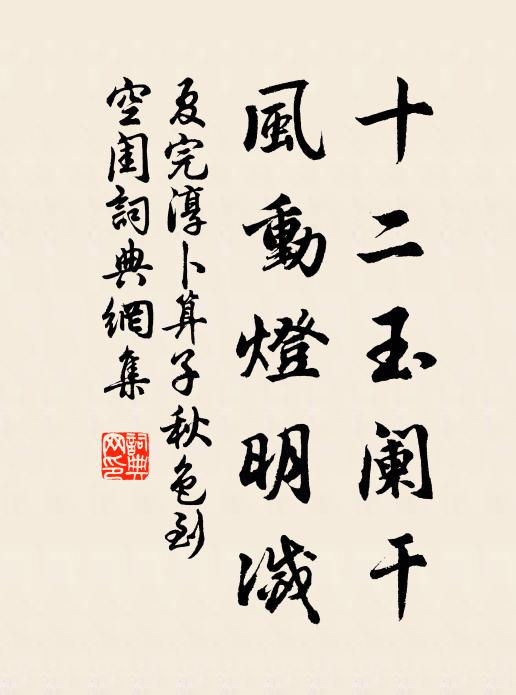 十二玉阑干
風動燈明滅
夏完淳卜算子秋色到
空閨詞典網集
詞典网印